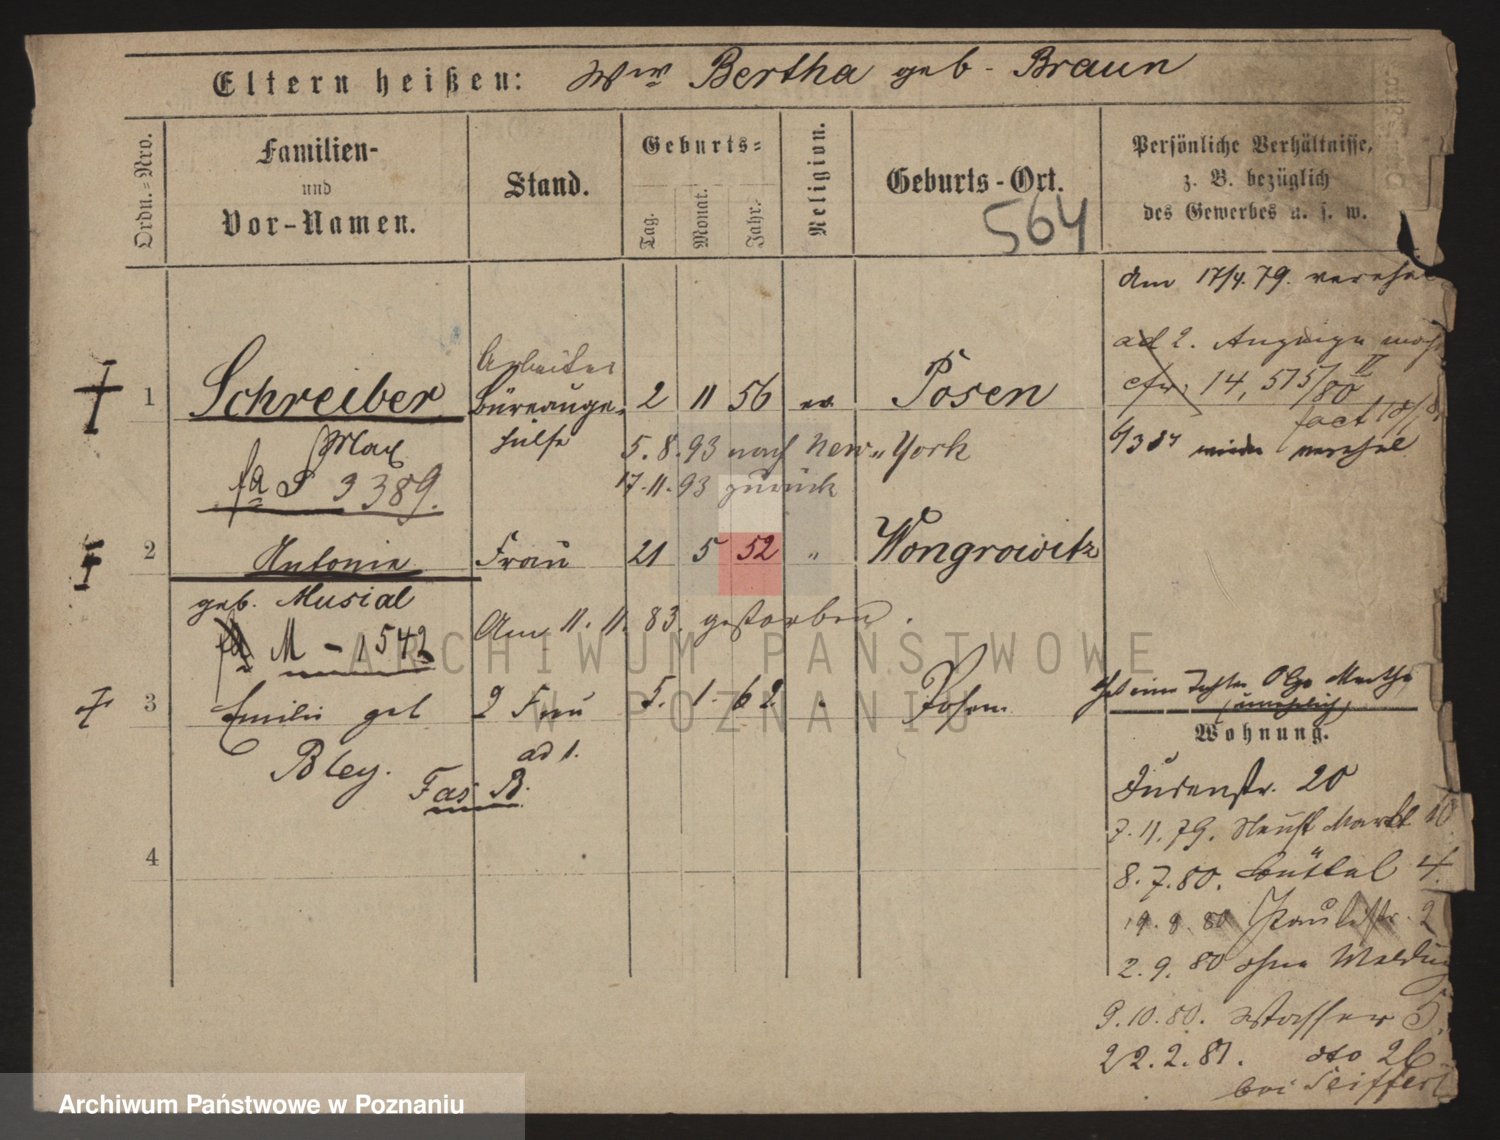 Eltern heißen: Ww Bertha geb. Braun
Ordn.=Nro.
Familien-
und
Vor-Namen.
Stand.
Geburts=
Tag.
Monat.
Jahr.
Religion.
Geburts-Ort.
564
Persönliche Verhältnisse,
z. B. bezüglich
des Gewerbes u. s. w.
Am 17/4. 79. verehel
ad 2. Anzeige
cfr. 14, 515/80 II
fact
6/3 84 wieder verehel.
1 Schreiber Arbeiter 2 11 56 ev. Posen
Büreauge-
hülfe
Max
5. 8. 93 nach New-York
fa S 3389.
17. 11. 93 zurück
2 Antonie Frau 21 5 52 " Wongrowitz
geb. Musial
Am 11. 11. 83. gestorben.
M - 1542
3 Emilie geb 2 Frau 5. 1. 62 . Posen.
Bley.
ad 1.
Fas B.
Hat eine Tochter Olga Martha
(unehelich)
4
Wohnung.
Judenstr. 20
7. 11. 79. Neust Markt 10
8. 7. 80. Büttel 4.
19. 8. 80 Paulistr. 2
2. 9. 80 ohne Meldung
9. 10. 80. Wasser 5.
22. 2. 81. dto 26
bei Seiffert
ARCHIWUM PAŃSTWOWE
W POZNANIU
Archiwum Państwowe w Poznaniu